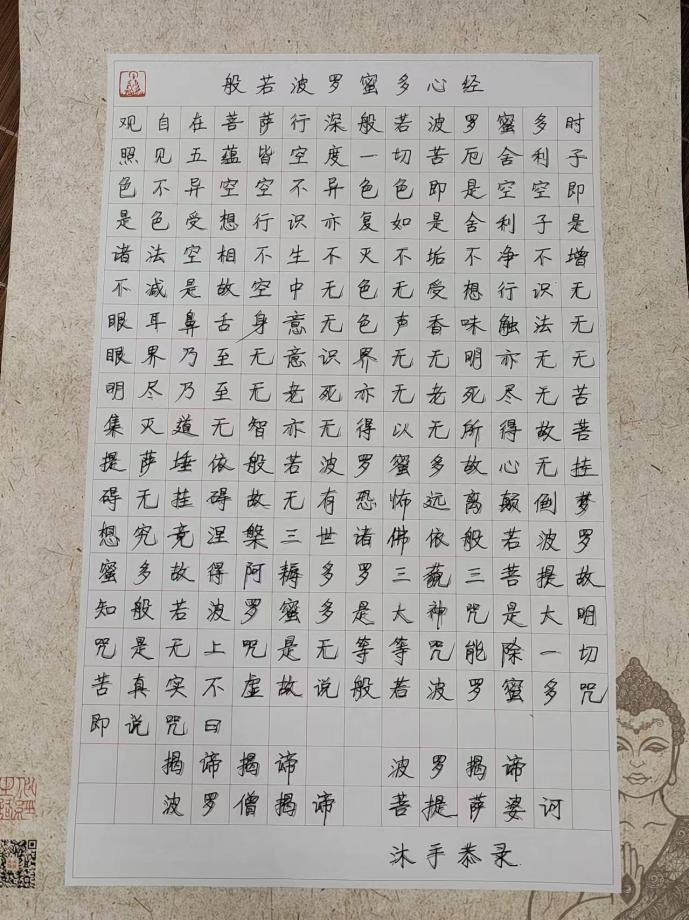 般若波罗蜜多心经
观自在菩萨行深般若波罗蜜多时
照见五蕴皆空度一切苦厄舍利子
色不异空空不异色色即是空空即
是色受想行识亦复如是舍利子是
诸法空相不生不灭不垢不净不增
不减是故空中无色无受想行识无
眼耳鼻舌身意无色声香味触法无
眼界乃至无意识界无无明亦无无
明尽乃至无老死亦无老死尽无苦
集灭道无智亦无得以无所得故菩
提萨埵依般若波罗蜜多故心无挂
碍无挂碍故无有恐怖远离颠倒梦
想究竟涅槃三世诸佛依般若波罗
蜜多故得阿耨多罗三藐三菩提故
知般若波罗蜜多是大神咒是大明
咒是无上咒是无等等咒能除一切
苦真实不虚故说般若波罗蜜多咒
即说咒曰
揭谛揭谛 波罗揭谛
波罗僧揭谛 菩提萨婆诃
沐手恭录